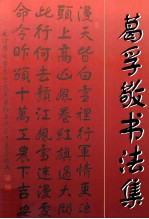 葛孚敬书法集
漫天皆白雪裡行軍情更迫
頭上高山風卷紅旗過大關
此行何去贛江風雪迷漫處
命令昨頒十萬工農下吉安